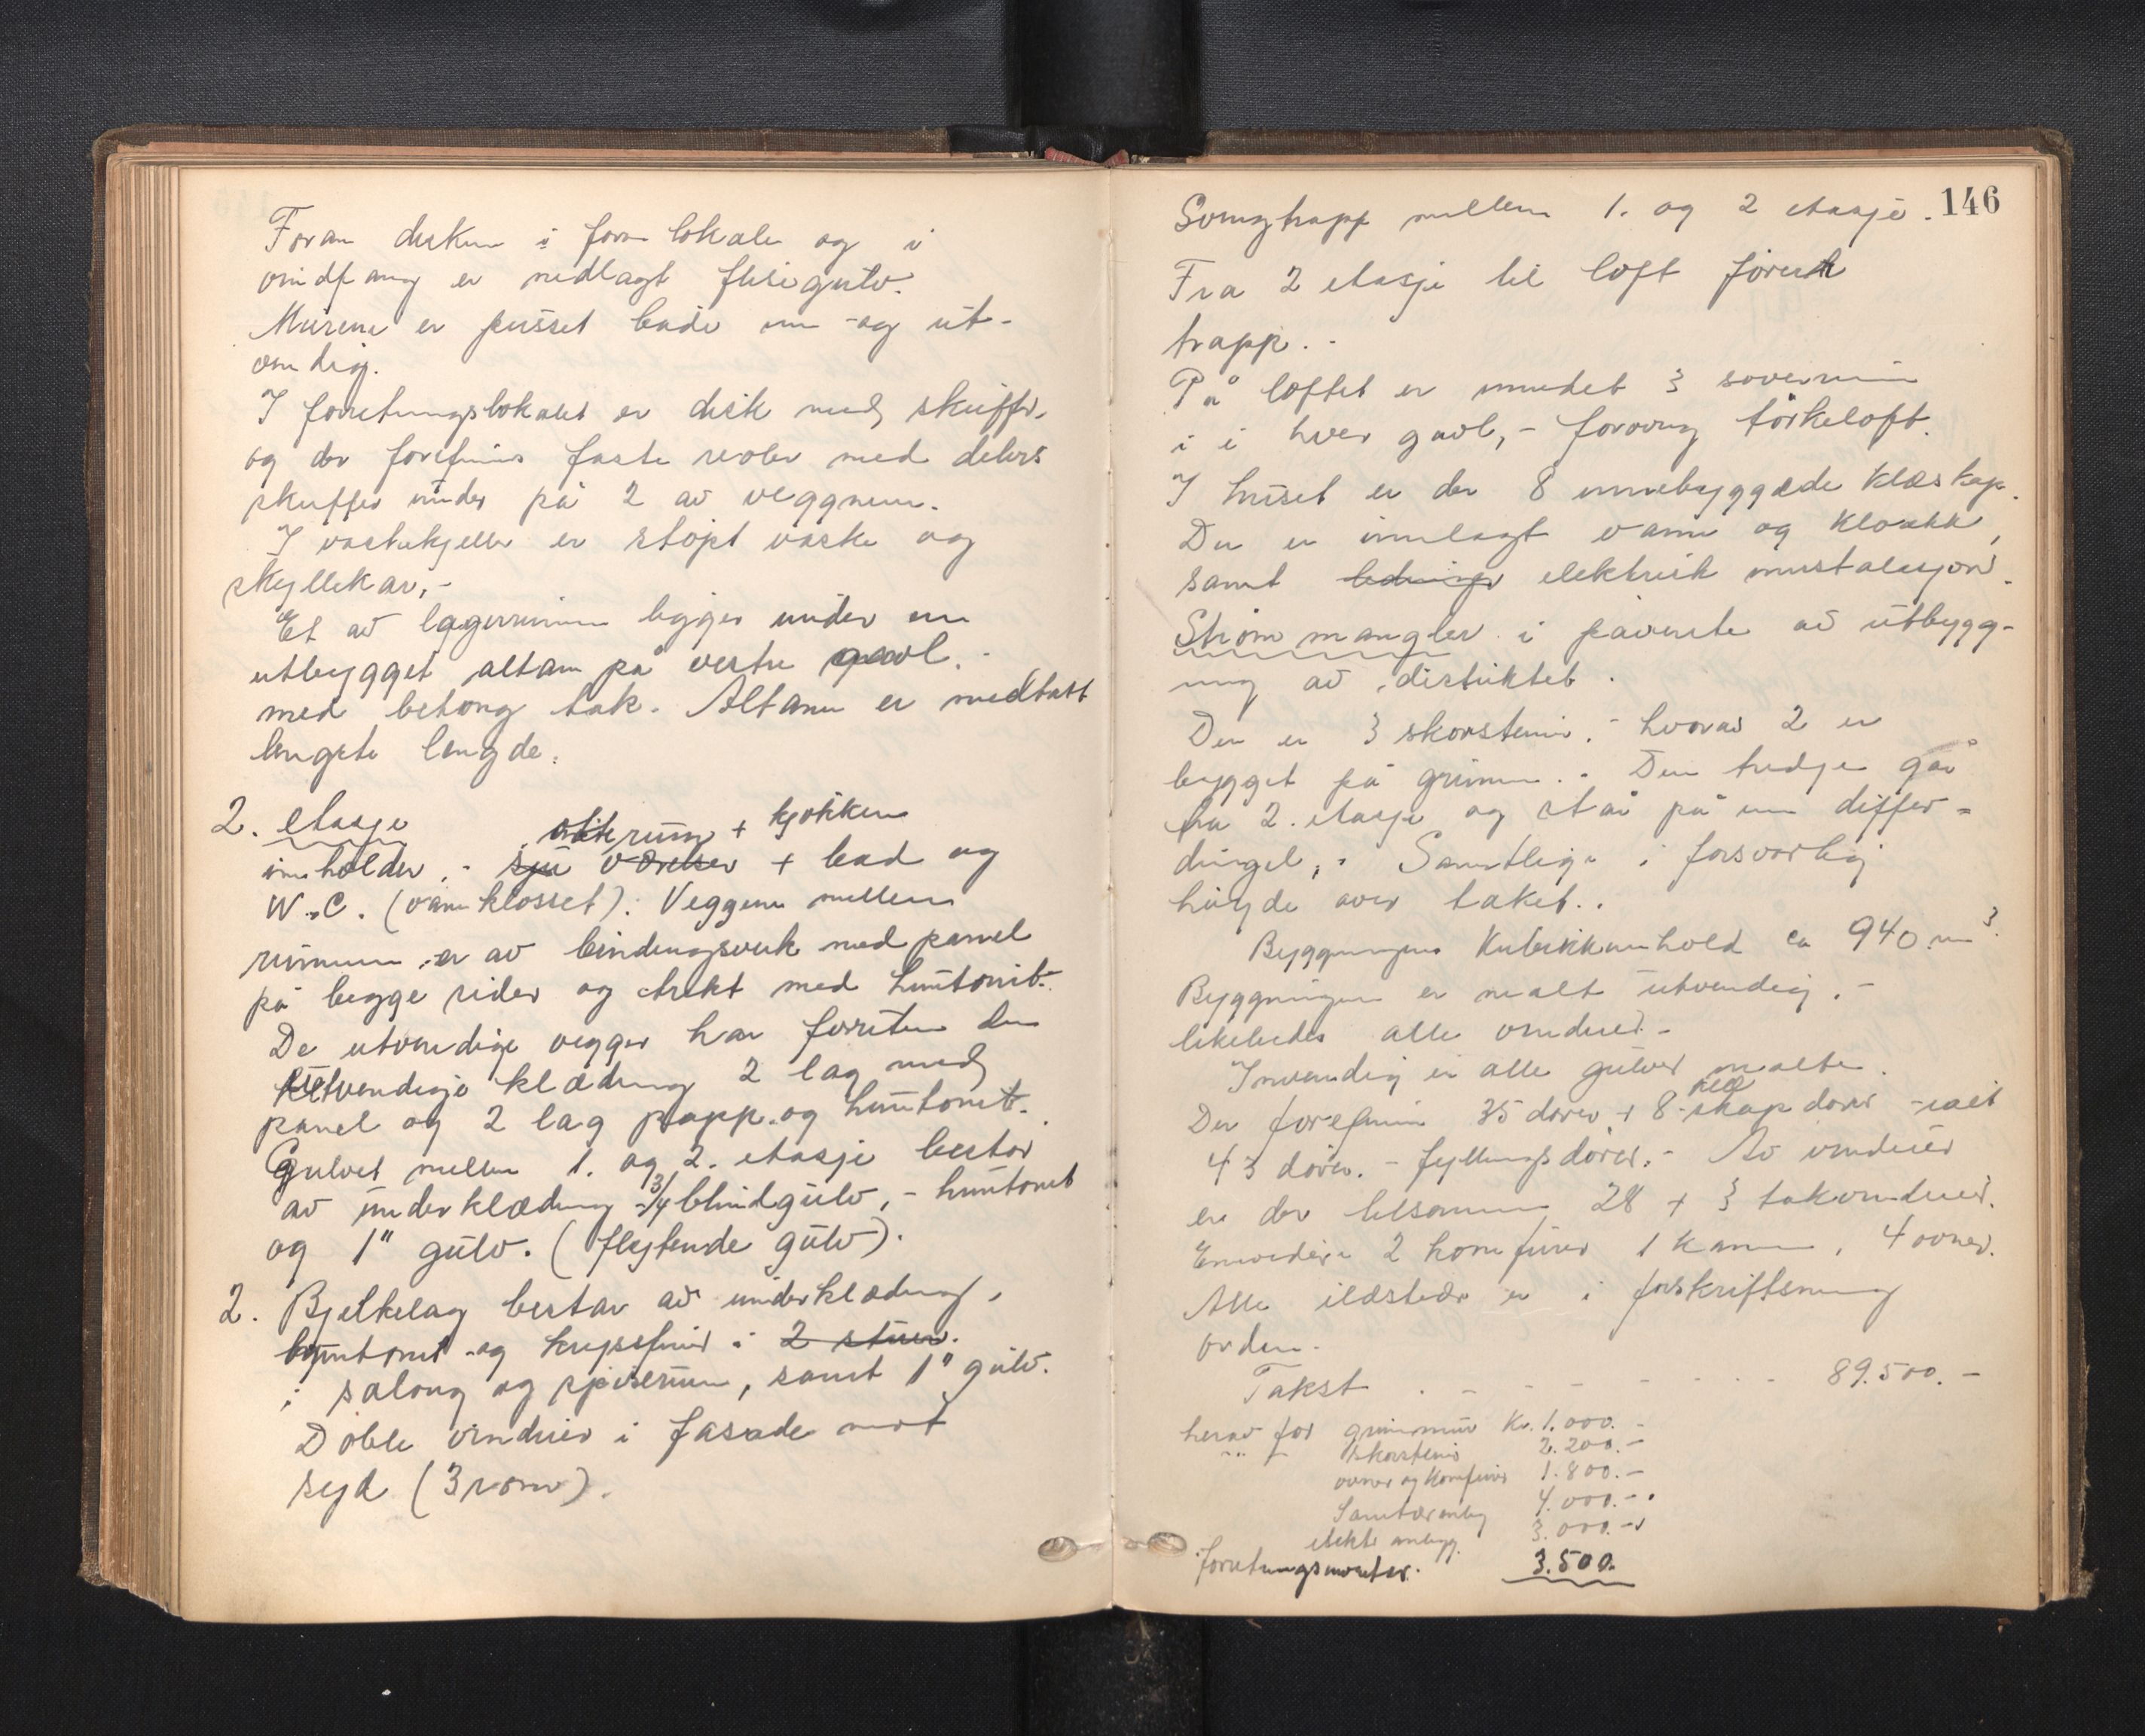 Foran disken i forr. lokale og i
vindfang er nedlagt flisegulv.
Murene er pusset både inn- og ut-
vendig.
I forretningslokalet er disk med skuffer,
og der forefinnes faste reoler med delvis
skuffer under på 2 av veggnene.
I vaskekjeller er støpt vaske og
skyllekar,-
Et av lagerrummene ligger under en
utbygget altan på vestre gavl.-
med betong tak. Altanen er medtatt
lengste lengde.
2. etasje
rum + kjøkken
inneholder,- sju værelser + bad og
W.C. (vannklosset). Veggene mellem
rummene er av bindingsverk med panel
på begge sider og trekt med huntonit.
De utvendige vegger har foruten den
utvendige klædning 2 lag med
panel og 2 lag papp og huntonit.
Gulvet mellem 1. og 2. etasje består
av underklædning - 3/4 blindgulv, - huntonit
og 1" gulv. (flytende gulv).
2. Bjelkelag består av underklædning,
huntonit og kryssfiner i 2 stuer.
i salong og spiserum, samt 1" gulv.
Doble vinduer i fasade mot
syd (3 rom).
146
Svingtrapp mellem 1. og 2 etasje.
Fra 2 etasje til loft fører
trapp.-
På loftet er innredet 3 soverum
i hver gavl,- forøvrig tørkeloft.
I huset er der 8 innebyggede klæskap.
Der er innlagt vann og kloakk,
samt ledninger elektrisk installasjon.
Strøm mangler i påvente av utbygg-
ing av distriktet.
Der er 3 skorsteiner,- hvorav 2 er
bygget på grunnen.- Den tredje går
fra 2. etasje og står på en differ-
dingel,- Samtlige i forsvarlig
høyde over taket..
Byggningens Kubikkinnhold ca 940 m³.
Byggningen er malt utvendig.-
likeledes alle vinduer.-
Innvendig er alle gulver malte.
Der forefinnes 35 dører + 8 klæskapdører - ialt
43 dører.- fyllingsdører.- Av vinduer
er der tilsammen 28 + 3 takvinduer.
Enn videre 2 komfurer 1 kamin, 4 ovner.
Alle ildsteder er i forskriftsmessig
orden.
Takst . - - - - - - 89.500.-
herav for grunnmur Kr. 1.000.-
" " skorstener 2.200.-
ovner og komfurer 1.800.-
Sanitæranlegg 4.000.-
elektr. anlegg. 3.000.-
forretningsinventar. 3.500.